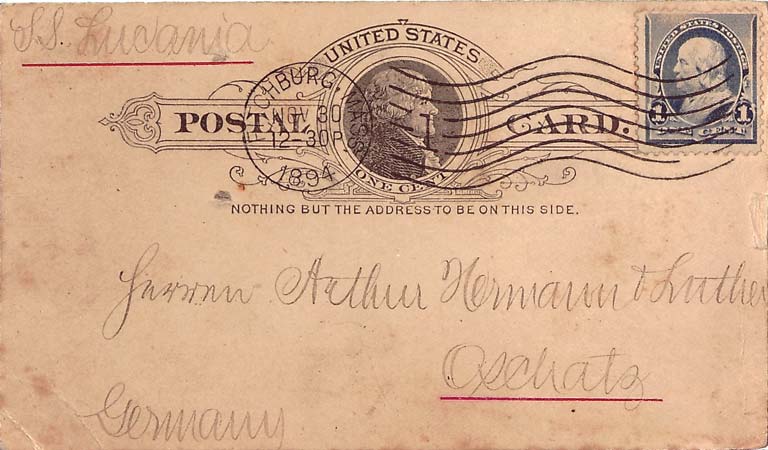 S.S. Lucania
UNITED STATES
POSTAL CARD.
ONE CENT
NOTHING BUT THE ADDRESS TO BE ON THIS SIDE.
FITCHBURG, MASS.
NOV 30
12-30P
1894
1
UNITED STATES POSTAGE
1 ONE CENT 1
Herren Arthur Hermann & Luther
Oschatz
Germany